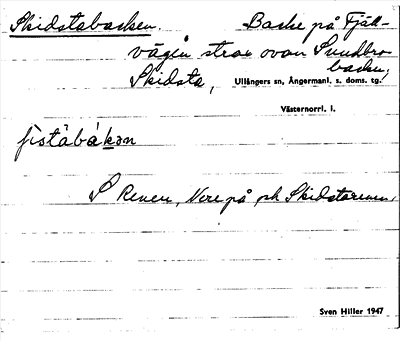 Skidstabacken. Backe på Fjäll-
vägen strax ovan Sundbro-
backen,
Skidsta, Ullångers sn, Ångermanl. s. doms. tg.
Västernorrl. l.
ʃìstàbákən
S Reven, Nere på Skidstareven,
Sven Hiller 1947